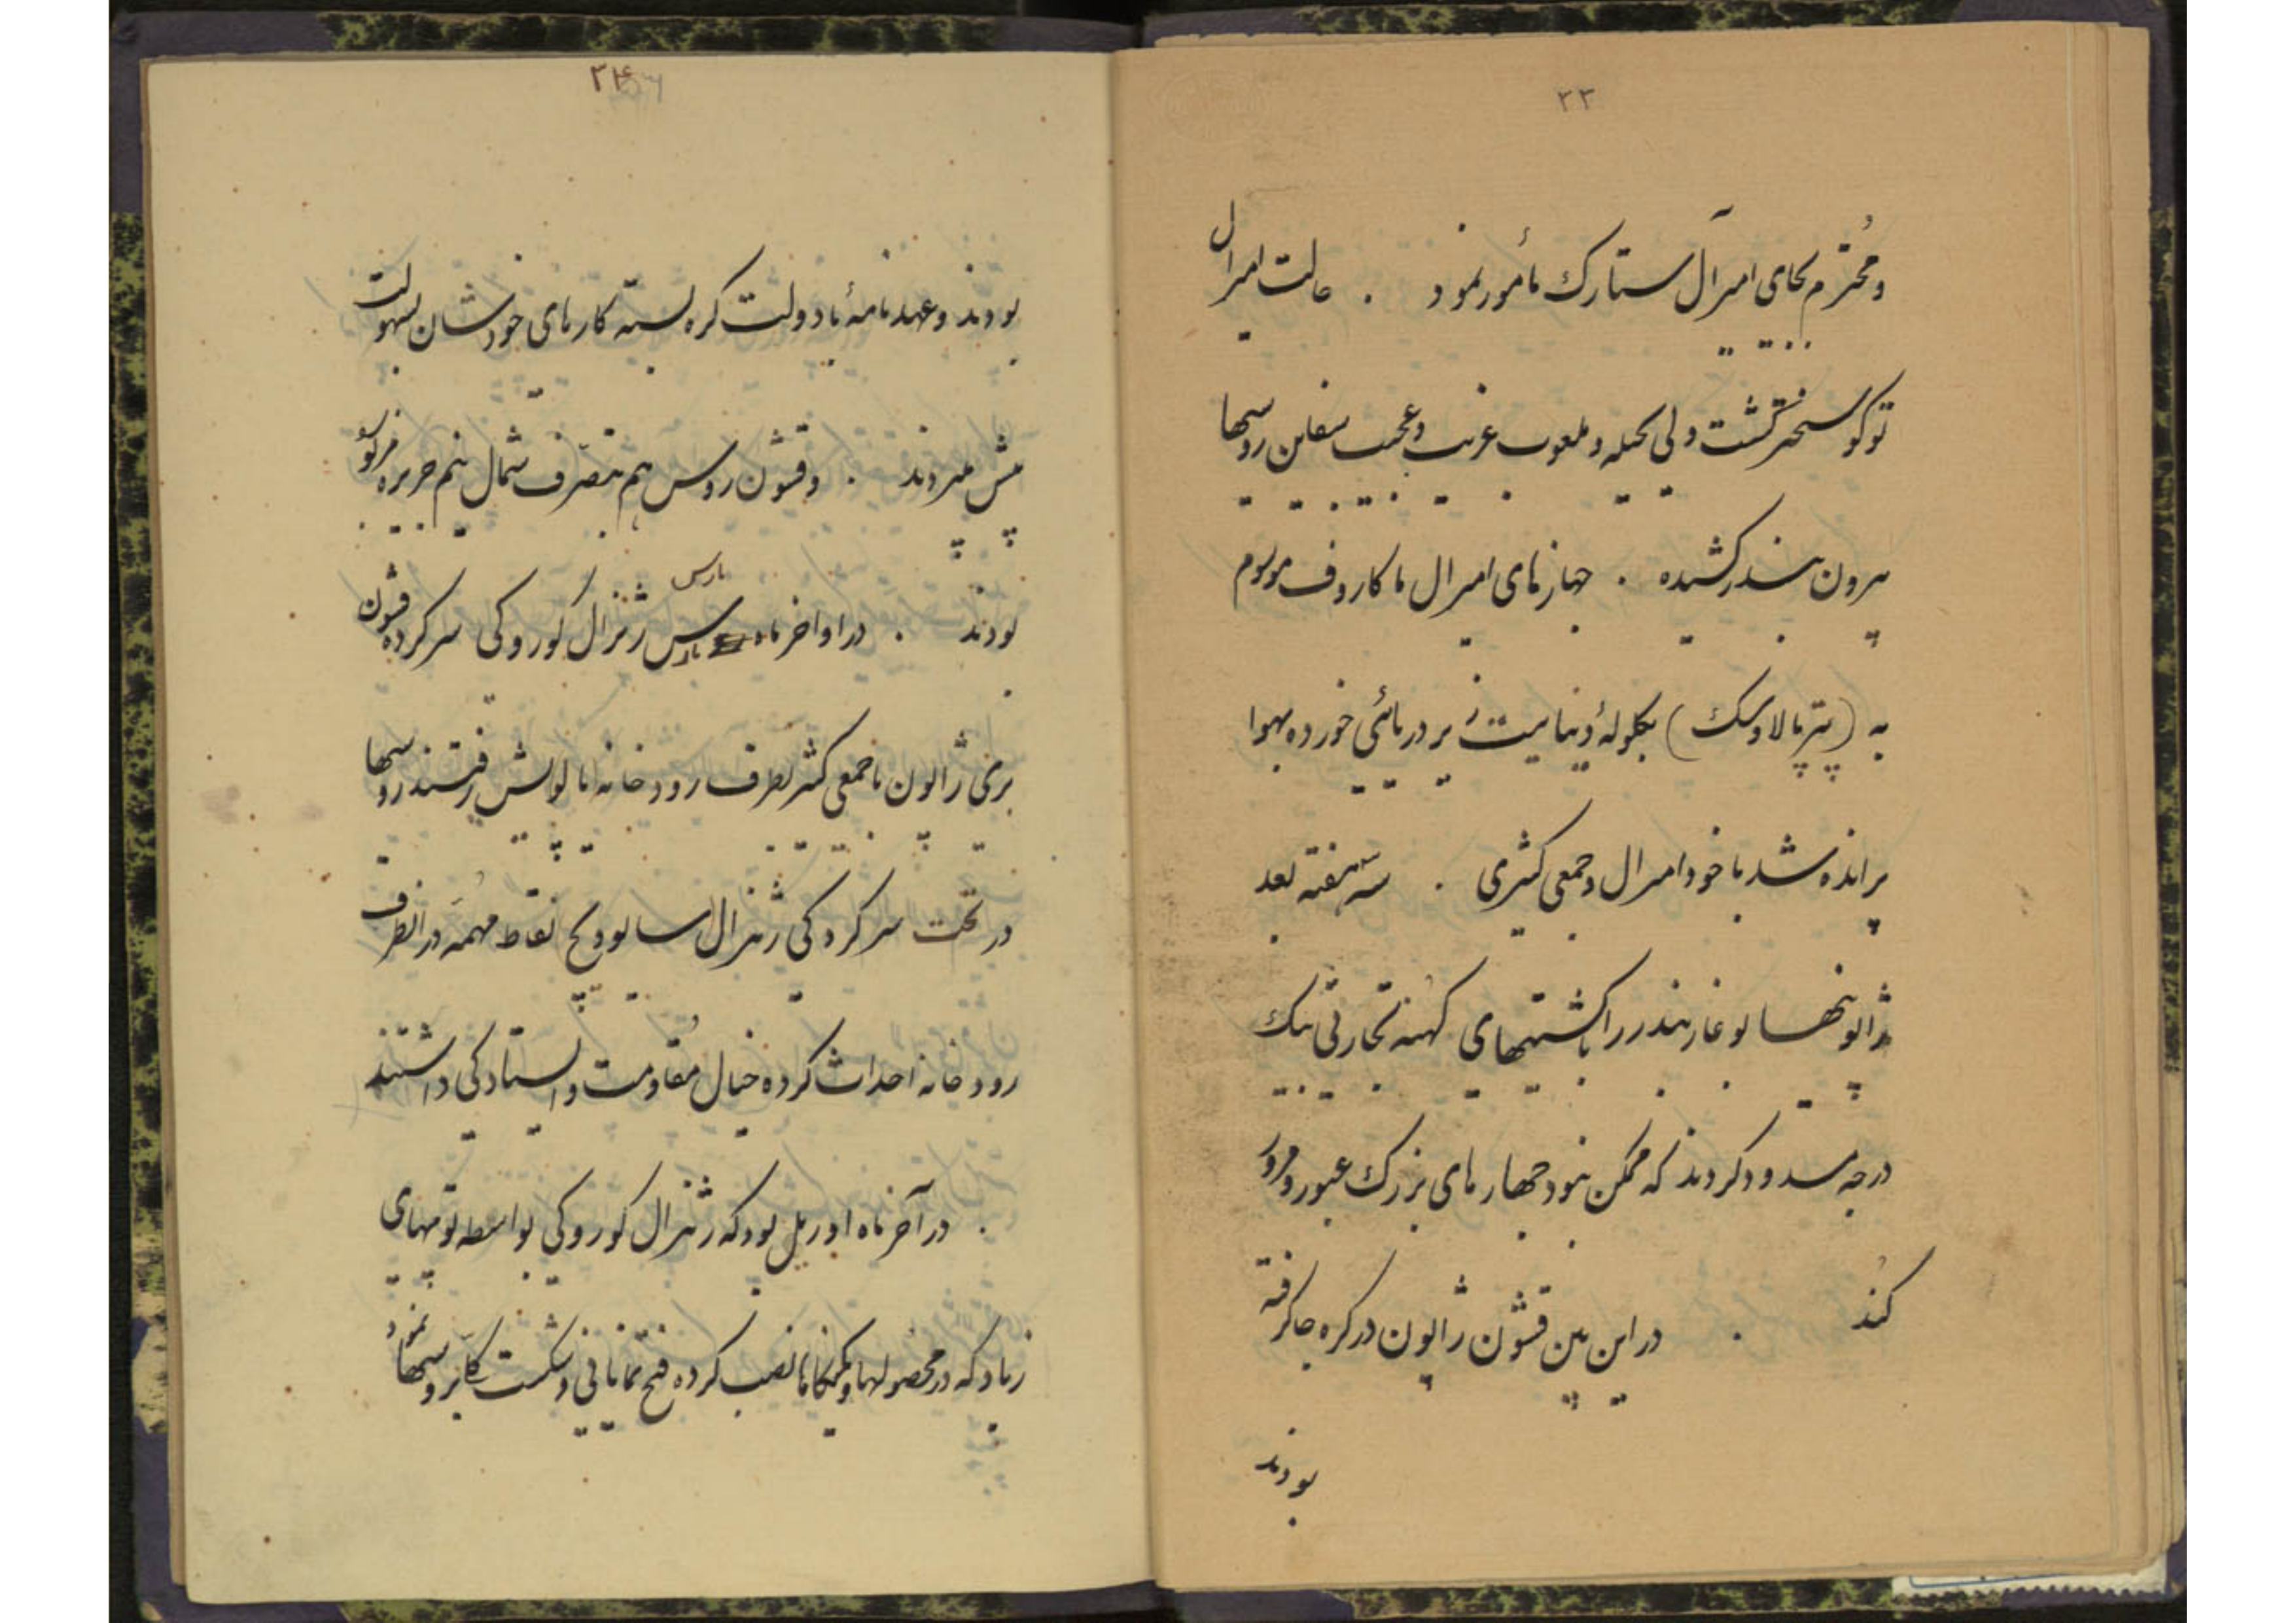 ۲۳
و محترم بجای امیرآل ستارک مأمور نمود . حالت امیرال
توکو سخت‌تر گشت ولی بحیله و ملعوب غریب و عجیب سفاین روسیها
بیرون بندر کشیده . جهازهای امیرال ماکاروف موسوم
به (پتر پالاوسک) بگلولهٔ دینامیت زیر دریائی خورده بهوا
پرانده شد با خود امیرال و جمعی کثیری . سه هفته بعد
ژاپونیها بوغاز بندر را با کشتیهای کهنه تجارتی بیک
درجه مسدود کردند که ممکن نبود جهازهای بزرگ عبور و مرور
کند . در این بین قشون ژاپون در کره جا گرفته
بودند
۲۴
بودند و عهدنامهٔ با دولت کره بسته کارهای خودشان بسهولت
پیش میبردند . و قشون روس هم متصرف شمال نیم جزیره مزبور
بودند . در اواخر ماه مارس ژنرال کوروکی سرکرده قشون
مارس
بری ژاپون با جمعی کثیر بطرف رودخانه یالو پیش رفتند روسیها
در تحت سرکردگی ژنرال ساسولویچ نقاط مهمّه در انطرف
رودخانه احداث کرده خیال مقاومت و ایستادگی داشتند
. در آخر ماه اوریل بود که ژنرال کوروکی بواسطه توپهای
زیاد که در محصولها و نصب کرده فتح نمایانی و شکست بروسیها نمود